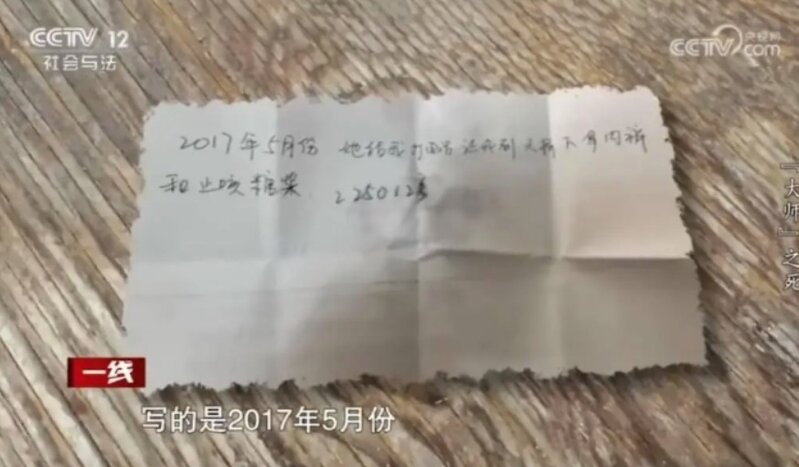 CCTV 12
社会与法
CCTV.com
央视网
2017年5月份 她给我打电话说到天桥下拿内裤
和止咳糖浆
『大师』之死
一线
写的是2017年5月份